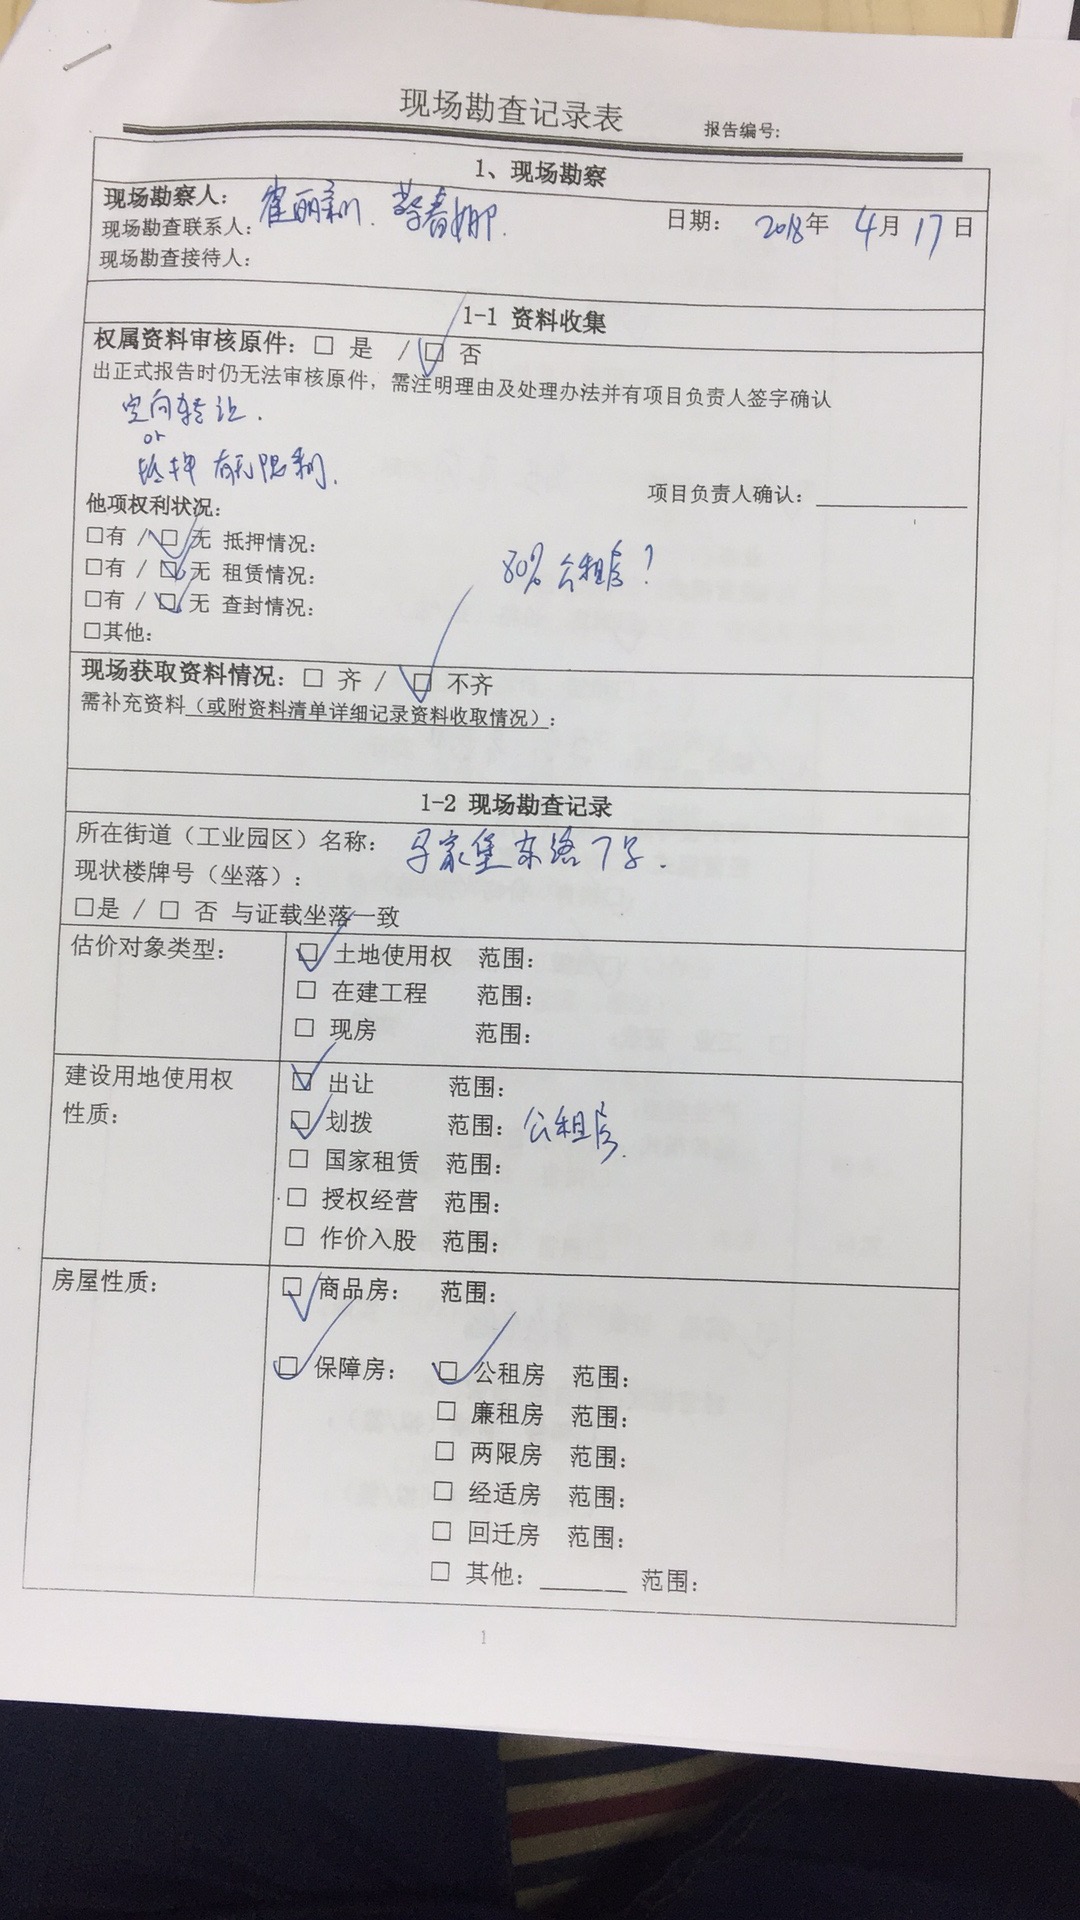 现场勘查记录表 报告编号:
1、现场勘察
现场勘察人: 崔丽 春娜.
现场勘查联系人: 日期: 2018年 4月 17日
现场勘查接待人:
1-1 资料收集
权属资料审核原件: □ 是 / ☑ 否
出正式报告时仍无法审核原件, 需注明理由及处理办法并有项目负责人签字确认
定向转让.
or
抵押 有无限制.
项目负责人确认: ________
他项权利状况:
□有 / ☑ 无 抵押情况:
□有 / ☑ 无 租赁情况:
80% 公租房?
□有 / ☑ 无 查封情况:
□其他:
现场获取资料情况: □ 齐 / ☑ 不齐
需补充资料(或附资料清单详细记录资料收取情况):
1-2 现场勘查记录
所在街道(工业园区)名称: 马家堡东路7号
现状楼牌号(坐落):
□是 / □ 否 与证载坐落一致
估价对象类型: ☑ 土地使用权 范围:
□ 在建工程 范围:
□ 现房 范围:
建设用地使用权 ☑ 出让 范围:
性质: ☑ 划拨 范围: 公租房.
□ 国家租赁 范围:
□ 授权经营 范围:
□ 作价入股 范围:
房屋性质: ☑ 商品房: 范围:
☑ 保障房: ☑ 公租房 范围:
□ 廉租房 范围:
□ 两限房 范围:
□ 经适房 范围:
□ 回迁房 范围:
□ 其他: ______ 范围:
1